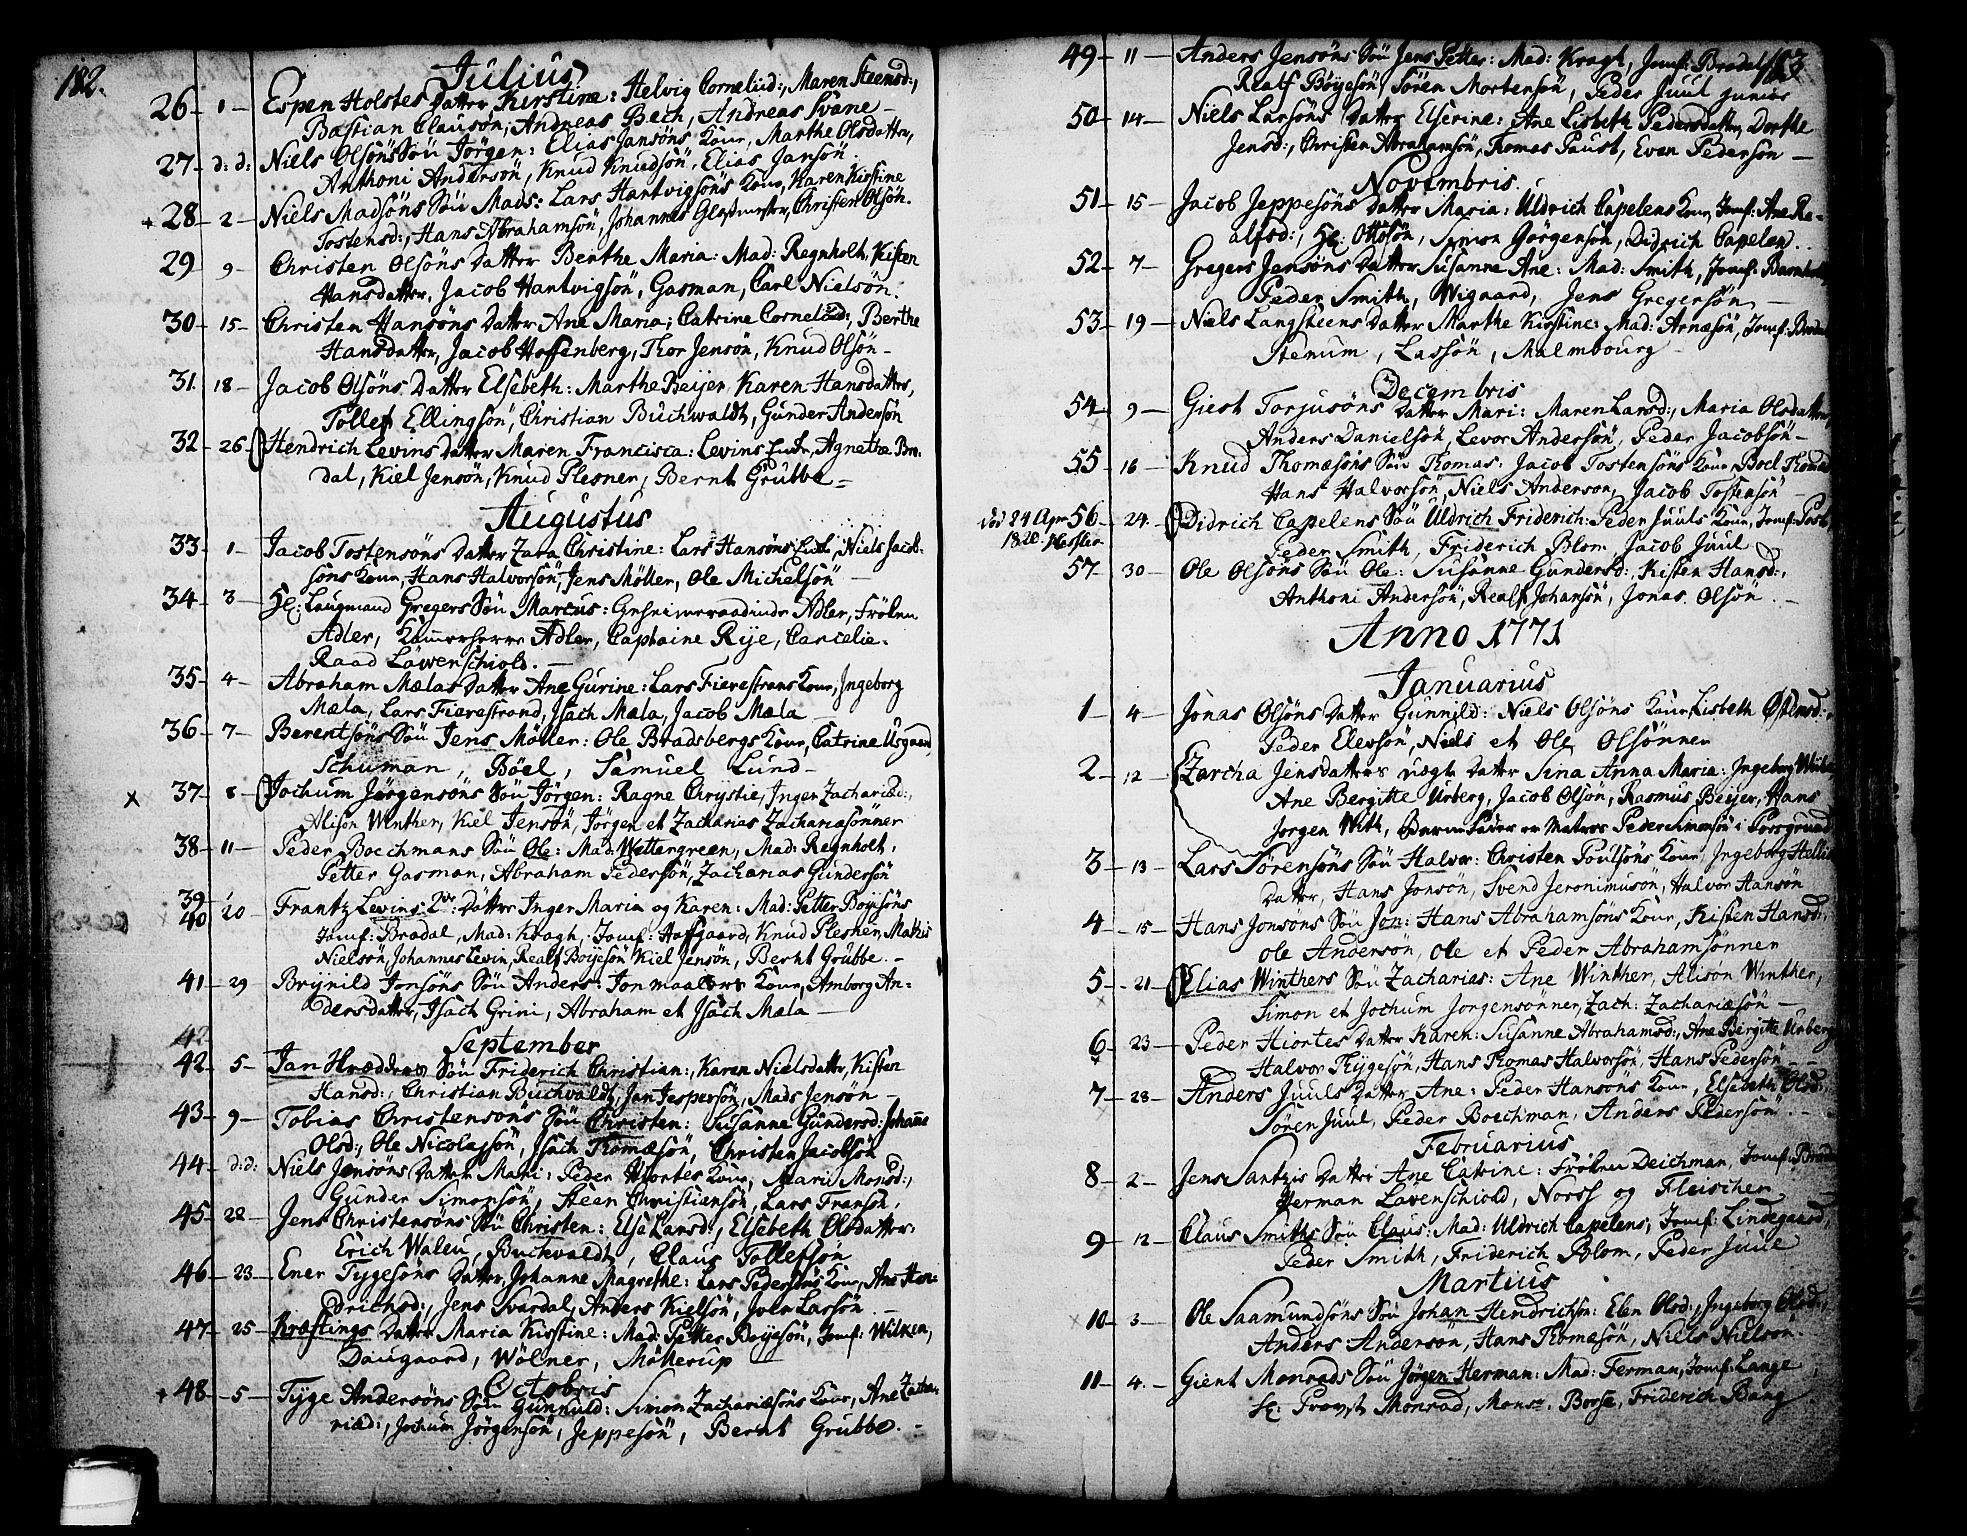 182.
Julius
26 - 1 - Espen Holstes Datter Kirstine: Helvig Corneliid:, Maren Steensd:,
Bastian Clausøn, Andreas Bech, Andreas Svane -
27 - d: d: Niels Olsöns Sön Jörgen: Elias Jansöns Kone, Marthe Olsdatter,
Anthoni Andersön, Knud Knudsön, Elias Jansön.
+ 28 - 2 - Niels Madsöns Sön Mads: Lars Hantvigsöns Kone, Karen Kirstine
Tostensd:, Hans Abrahamsön, Johannes Glasmester, Christen Olsön.
29 9 - Christen Olsöns Datter Berthe Maria: Mad: Regnholt, Kisten
Hansdatter, Jacob Hantvigsön, Gasman, Carl Nielsön.
30 - 15 - Christen Hansöns Datter Ane Maria; Catrine Cornelid:, Berthe
Hansdatter, Jacob Hoffenberg, Thor Jensön, Knud Olsön -
31. 18 - Jacob Olsöns Datter Elsebeth: Marthe Beijer, Karen Hansdatter,
Tollef Ellingsön, Christian Buchwaldt, Gunder Andersön
32 - 26 - Hendrich Levins Datter Maren Francisca: Levins Enke, Agnethe Bro-
dal, Kiel Jensön, Knud Plesner, Bernt Grubbe -
Augustus
33 - 1 - Jacob Tostensöns Datter Zara Christine: Lars Hansöns Enke, Niels Jacob-
söns Kone, Hans Halvorsön, Jens Möller, Ole Michelsön -
34 - 3 - Hr: Laugmand Gregers Sön Marcus: Adler, Fröken
Adler, Kammerherre Adler, Captaine Rije, Cancelie-
Raad Löwenschiold. -
35 - 4 - Abraham Mælas Datter Ane Gurine: Lars Fierestrans Kone, Ingeborg
Mæla, Lars Fierestrand, Isach Mæla, Jacob Mæla -
36 - 7 - Berentsöns Sön Jens Möller: Ole Bradsbergs Kone, Catrine Usgaard,
Schuman, Böel, Samuel Lund -
x 37 - 8 - Jochum Jörgensöns Sön Jörgen: Ragne Chrystie, Inger Zachariæd:,
Alison Winther, Kiel Jensön, Jörgen et Zacharias Zachariasönner
38 - 11 - Peder Boechmans Sön Ole: Mad: Wettergreen, Mad: Regnholt,
Petter Gasman, Abraham Pedersön, Zacharias Gundersön
39 -
40 20 - Frantz Levins 2de Dötter Inger Maria og Karen: Mad: Petter Boyesöns
Jomf: Brodal, Mad: Kragh, Jomf: Aafgaard, Knud Plesner, Mathis
Nielsön, Johannes Levin, Realf Boyesön, Kiel Jensön, Bernt Grubbe. -
41 - 29 Brynild Jonsöns Sön Anders: Jon maalers Kone, Amborg An-
dersdatter, Isach Grini, Abraham et Isach Mæla -
42
September
42 - 5 - Jan Sön Friderich Christian:, Karen Nielsdatter, Kisten
Hansd:, Christian Buchvaldt, Jan Jespersön, Mads Jensön -
43 - 9 - Tobias Christensöns Sön Christen: Susanne Gundersd: Johanne
Olsd:, Ole Nicolajsön, Isach Thomæsön, Christen Jacobsön
44 - d: d: Niels Jensöns Datter Mari: Peder Hjortes Kone, Mari Monsd:,
Gunder Simonsön, Steen Christiansön, Lars Fransön,
45 - 28 - Jens Christensöns Sön Christen: Elsa Larsd:, Elsebeth Olsdatter,
Erich Waleu, Buchvaldt, Claus Tollefsön
46 - 23 - Ener Tygesöns Datter Johanne Magrethe: Lars Pedersöns Kone, Ane Hen-
drichsd:, Jens Svardal, Anders Kielsön, Iver Larsön. -
47 - 25 - Kræftings Datter Maria Kirstine: Mad: Petter Boyesön, Jomf: Wilken,
Daugaard, Wölner, Möllerup -
Octobris
+ 48 - 5 - Tyge Andersöns Sön Gunnuld: Simon Zachariæsöns Kone, Ane Zacha-
riæd:, Jochum Jörgensön, Jeppesön, Bernt Grubbe. -
183
49 - 11 - Anders Jensöns Sön Jens Petter: Mad: Kragh, Jomf: Brodal,
Realf Böyesön, Sören Mortensön, Peder Juul junior
50 - 14 - Niels Larsöns Datter Elserine: Ane Lisbeth Pedersdatter, Dorthe
Jensd:, Christen Abrahamsön, Thomas Paust, Even Pedersön -
Novembris.
51 - 15 - Jacob Jeppesöns Datter Maria: Uldrich Capelens Kone, Jomf: Ane Re-
alfsd:, Hr: Ottosön, Simon Görgensön, Didrich Capelen.
52 - 7 - Gregers Jansöns Datter Susanne Ane: Mad: Smith, Jomf:
Peder Smith, Wigaard, Jens Gregersön -
53 - 19 - Niels Langsteens Datter Marthe Kirstine: Mad: Arnæsön, Jomf: Brodal
Stenum, Lassön, Malmbourg -
Decembris
54 - 9 - Giert Torjusöns Datter Mari: Maren Larsd:, Maria Olsdatter,
Anders Danielsön, Levor Andersön, Peder Jacobsön -
55 - 16 - Knud Thomæsöns Sön Thomas: Jacob Tostensöns Kone, Boel Thomæ
Hans Halvorsön, Niels Anderson, Jacob Tostensön -
död 24 Apr 56 - 24 - Didrich Capelens Sön Uldrich Friderich: Peder Juuls Kone, Jomf:
1820 Peder Smith, Friderich Blom, Jacob Juul
57 - 30 - Ole Olsöns Sön Ole: Susanne Gundersd:, Kisten Hansd:,
Anthoni Andersön, Realf Johansön, Jonas Olsön. -
Anno 1771
Januarius
1 - 4 - Jonas Olsöns Datter Gunnild: Niels Olsöns Kone, Lisbeth Östensd:,
Peder Elevsön, Niels et Ole Olsönner
2 - 12 - Zarcha Jensdatters uægte Datter Sina Anna Maria: Ingeborg
Ane Bergitte Urberg, Jacob Olsön, Rasmus Beijer, Hans
Jorgen With, Barne Fader er Matros Peder Simonsön i Porsgrund
3 - 13 - Lars Sörensöns Sön Halvor: Christen Poulsöns Kone, Ingeborg
Datter, Hans Jonsön, Svend Jeronimusön, Halvor Hansön
4 - 15 - Hans Jonsöns Sön Jon: Hans Abrahamsöns Kone, Kisten Hansd:,
Ole Andersön, Ole et Peder Abrahamsönner
5 - 21 - Elias Winthers Sön Zacharias: Ane Winther, Alison Winther,
Simon et Jochum Jorgensonner, Zach: Zachariæsön -
6 - 23 - Peder Hiortes Datter Karen: Susanne Abrahamsd:, Ane Bergitte Urberg
Halvor Thygesön, Hans Thomas Halvorsön, Hans Pedersön -
7 - 28 - Anders Juuls Datter Ane: Peder Hansöns Kone, Elsebeth Olsd:,
Sören Juul, Peder Boechman, Anders Pedersön. -
Februarius
8 - 2 - Jens Datter Ane Catrine: Fröken Deichman, Jomf: Brodal
Herman Lövenschiold, Norss og Fleischer
9 - 12 - Claus Smiths Sön Claus: Mad: Uldrich Capelens, Jomf: Lindegaard,
Peder Smith, Friderich Blom, Peder Juul
Martius
10 - 3 - Ole Saamundsöns Sön Johan Hendrich: Elen Olsd:, Ingeborg Olsd:
Anders Andersön, Hans Thomæsön, Niels Nielsön.
11 - 4 - Gient Monrads Sön Jörgen Herman: Mad: Ferman, Jomf: Lange
Hr: Provst Monrad, Monsr. Borse, Friderich Bang